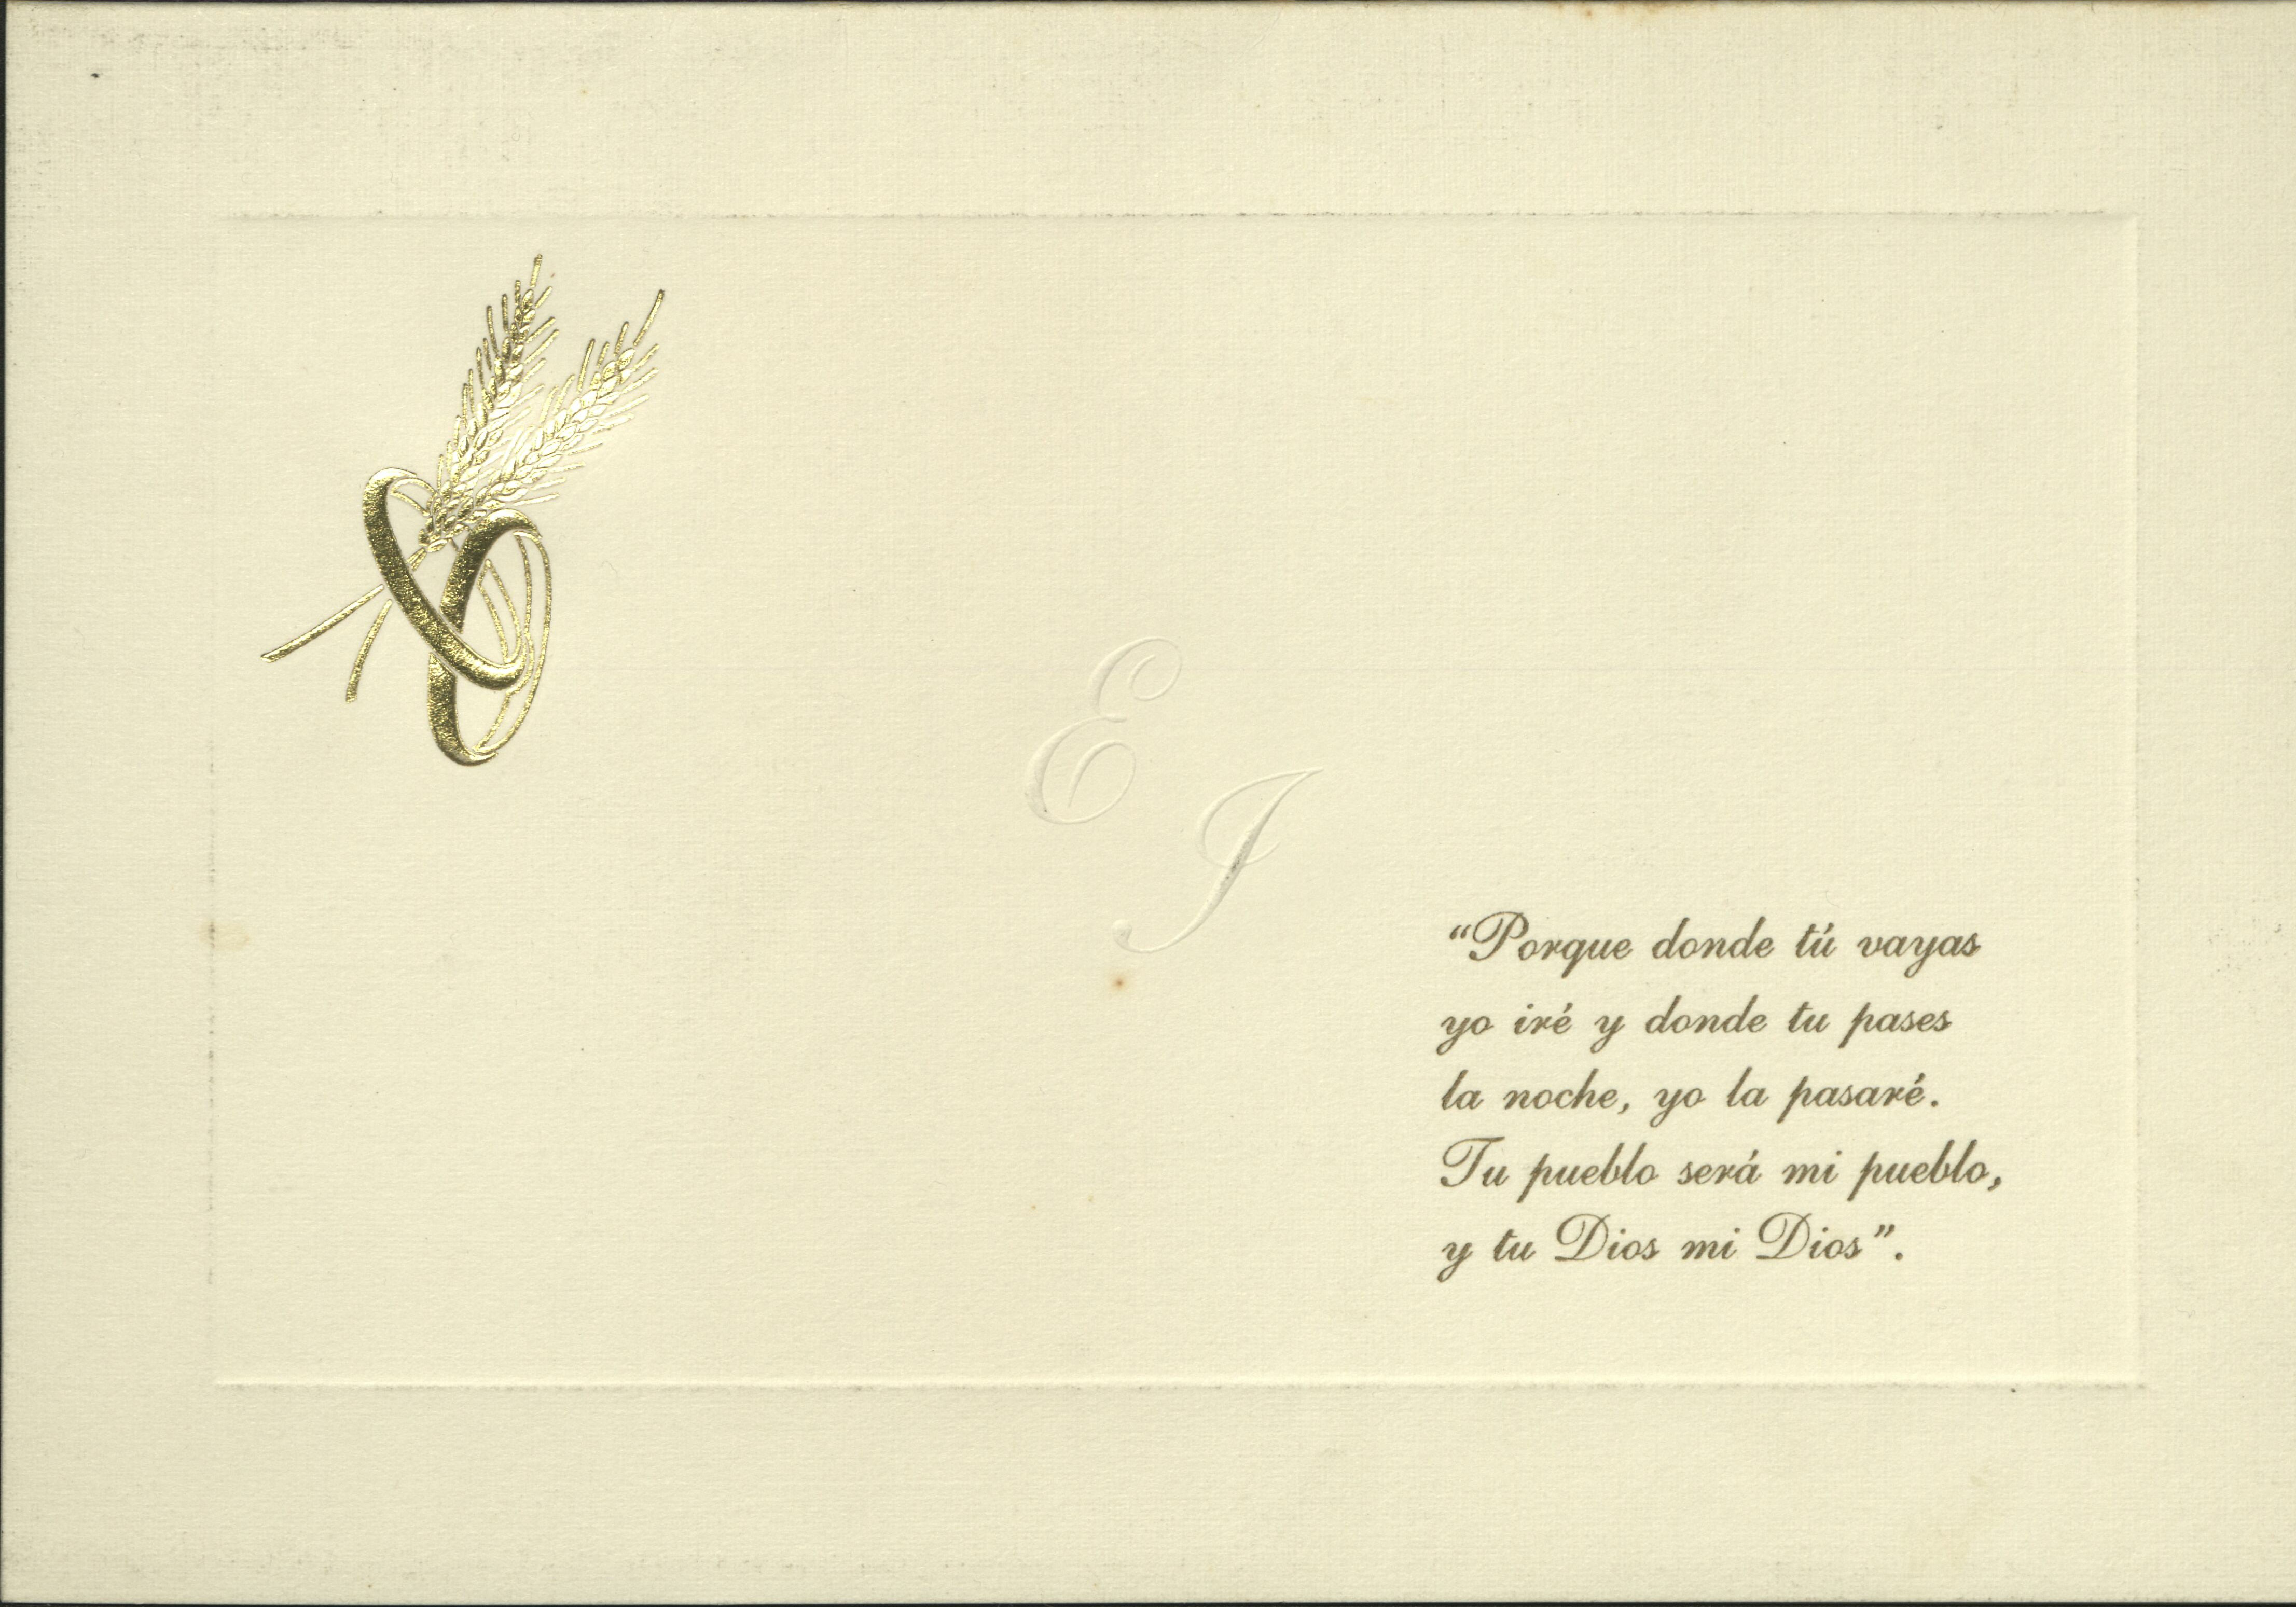 E
J
“Porque donde tú vayas
yo iré y donde tu pases
la noche, yo la pasaré.
Tu pueblo será mi pueblo,
y tu Dios mi Dios”.